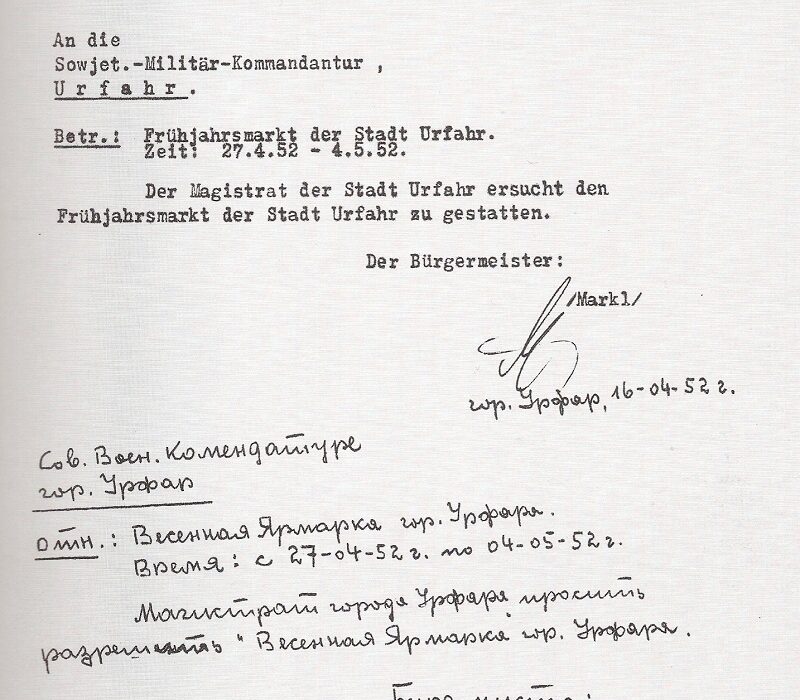 An die
Sowjet.-Militär-Kommandantur ,
U r f a h r .
Betr.: Frühjahrsmarkt der Stadt Urfahr.
Zeit: 27.4.52 - 4.5.52.
Der Magistrat der Stadt Urfahr ersucht den
Frühjahrsmarkt der Stadt Urfahr zu gestatten.
Der Bürgermeister:
/Markl/
гор. Урфар, 16-04-52 г.
Сов. Воен. Комендатуре
гор. Урфар
отн.: Весенная Ярмарка гор. Урфара.
Время: с 27-04-52 г. по 04-05-52 г.
Магистрат города Урфара просить
разрешить "Весенная Ярмарка" гор. Урфара.